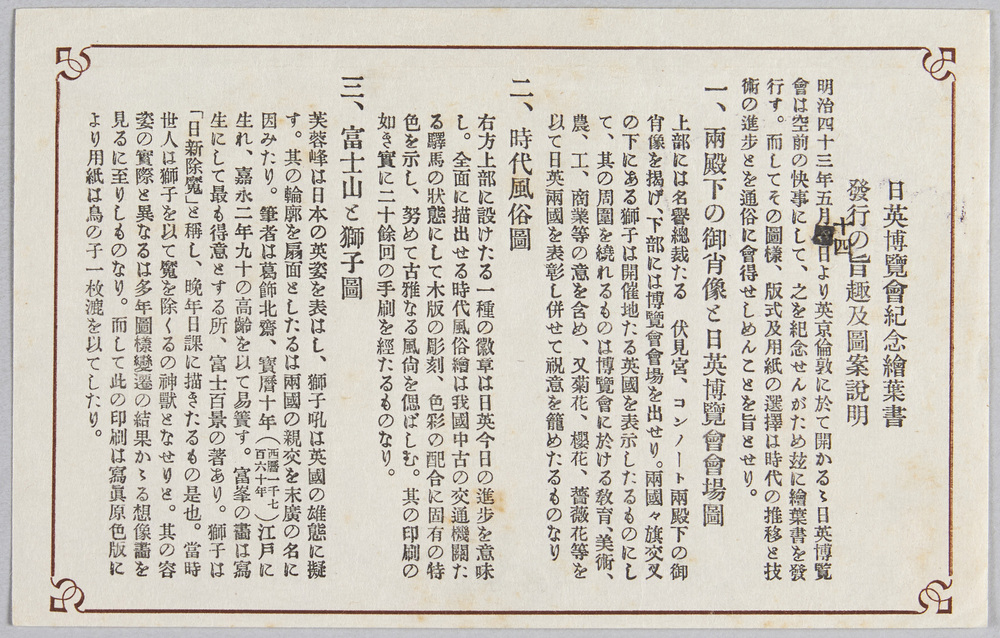 日英博覽會紀念繪葉書
發行の旨趣及圖案說明
明治四十三年五月十四日より英京倫敦に於て開かるゝ日英博覽
會は空前の快事にして、之を紀念せんがため玆に繪葉書を發
行す。而してその圖樣、版式及用紙の選擇は時代の推移と技
術の進步とを通俗に會得せしめんことを旨とせり。
一、兩殿下の御肖像と日英博覽會會場圖
上部には名譽總裁たる　伏見宮、コンノート兩殿下の御
肖像を揭げ、下部には博覽會會場を出せり。兩國々旗交叉
の下にある獅子は開催地たる英國を表示したるものにし
て、其の周圍を繞れるものは博覽會に於ける敎育、美術、
農、工、商業等の意を含め、又菊花、櫻花、薔薇花等を
以て日英兩國を表彰し併せて祝意を籠めたるものなり
二、時代風俗圖
右方上部に設けたる一種の徽章は日英今日の進步を意味
し。全面に描出せる時代風俗繪は我國中古の交通機關た
る驛馬の狀態にして木版の彫刻、色彩の配合に固有の特
色を示し、努めて古雅なる風尙を偲ばしむ。其の印刷の
如き實に二十餘回の手刷を經たるものなり。
三、富士山と獅子圖
芙蓉峰は日本の英姿を表はし、獅子吼は英國の雄態に擬
す。其の輪廓を扇面としたるは兩國の親交を末廣の名に
因みたり。筆者は葛飾北齋、寶曆十年（西曆一千七百六十年）江戶に
生れ、嘉永二年九十の高齡を以て易簀す。富峯の畵は寫
生にして最も得意とする所、富士百景の著あり。獅子は
「日新除魔」と稱し、晚年日課に描きたるもの是也。當時
世人は獅子を以て魔を除くるの神獸となせりと。其の容
姿の實際と異なるは多年圖樣變遷の結果かゝる想像畵を
見るに至りしものなり。而して此の印刷は寫眞原色版に
より用紙は鳥の子一枚漉を以てしたり。